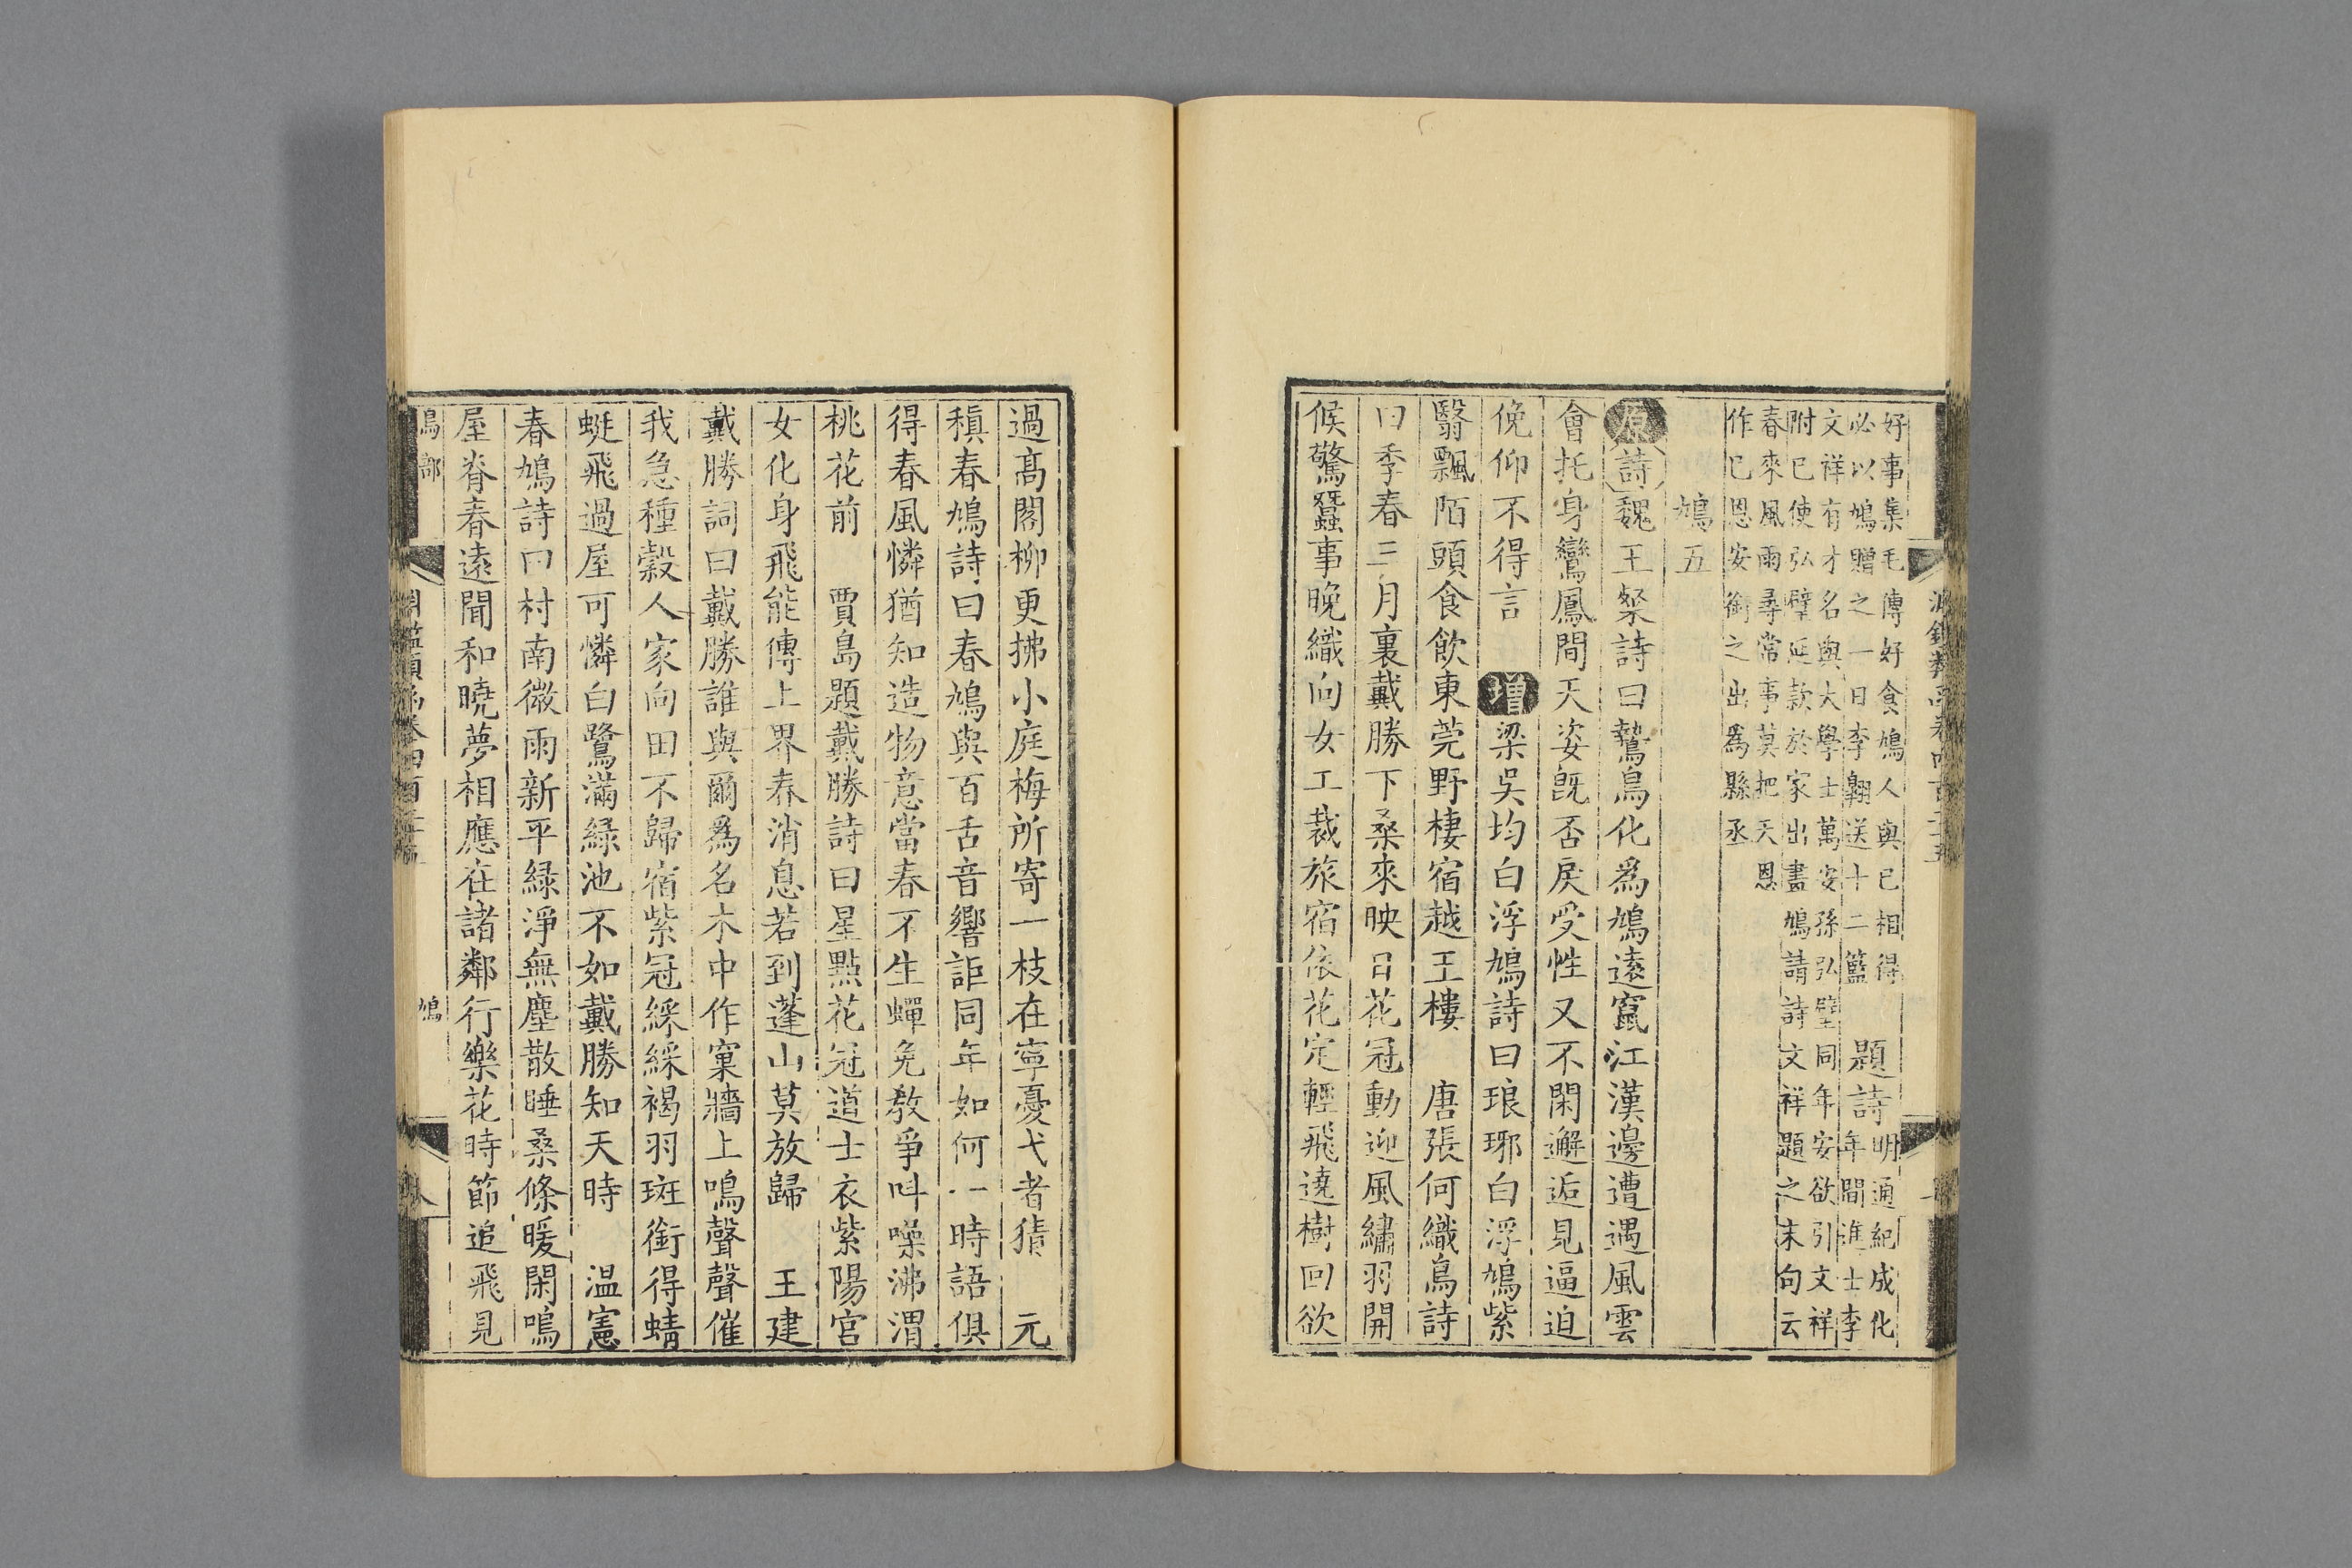 好事集毛傅好食鳩人與已相得
必以鳩贈之一日李翺送十二籃
題詩
明通紀成化
年間進士李
文祥有才名與大學士萬安孫弘璧同年安欲引文祥
附已使弘璧延款於家出畫鳩請詩文祥題之末句云
春來風雨尋常事莫把天恩
作已恩安銜之出爲縣丞
鳩五
原詩魏王粲詩曰鷙鳥化爲鳩遠竄江漢邊遭遇風雲
會托身鸞鳳間天姿旣否戾受性又不閑邂逅見逼迫
俛仰不得言 增梁吳均白浮鳩詩曰琅琊白浮鳩紫
翳飄陌頭食飲東莞野棲宿越王樓 唐張何織鳥詩
曰季春三月裏戴勝下桑來映日花冠動迎風繡羽開
候驚蠶事晚織向女工裁旅宿依花定輕飛遶樹回欲
過髙閣柳更拂小庭梅所寄一枝在寧憂弋者猜 元
稹春鳩詩曰春鳩與百舌音響詎同年如何一時語俱
得春風憐猶知造物意當春不生蟬免教爭叫噪沸渭
桃花前 賈島題戴勝詩曰星點花冠道士衣紫陽宮
女化身飛能傳上界春消息若到蓬山莫放歸 王建
戴勝詞曰戴勝誰與爾爲名木中作窠牆上鳴聲聲催
我急種穀人家向田不歸宿紫冠綵綵褐羽斑銜得蜻
蜓飛過屋可憐白鷺滿緑池不如戴勝知天時 温憲
春鳩詩曰村南微雨新平緑淨無塵散睡桑條暖閑鳴
屋脊春遠聞和曉夢相應在諸鄰行樂花時節追飛見
鳥部
鳩